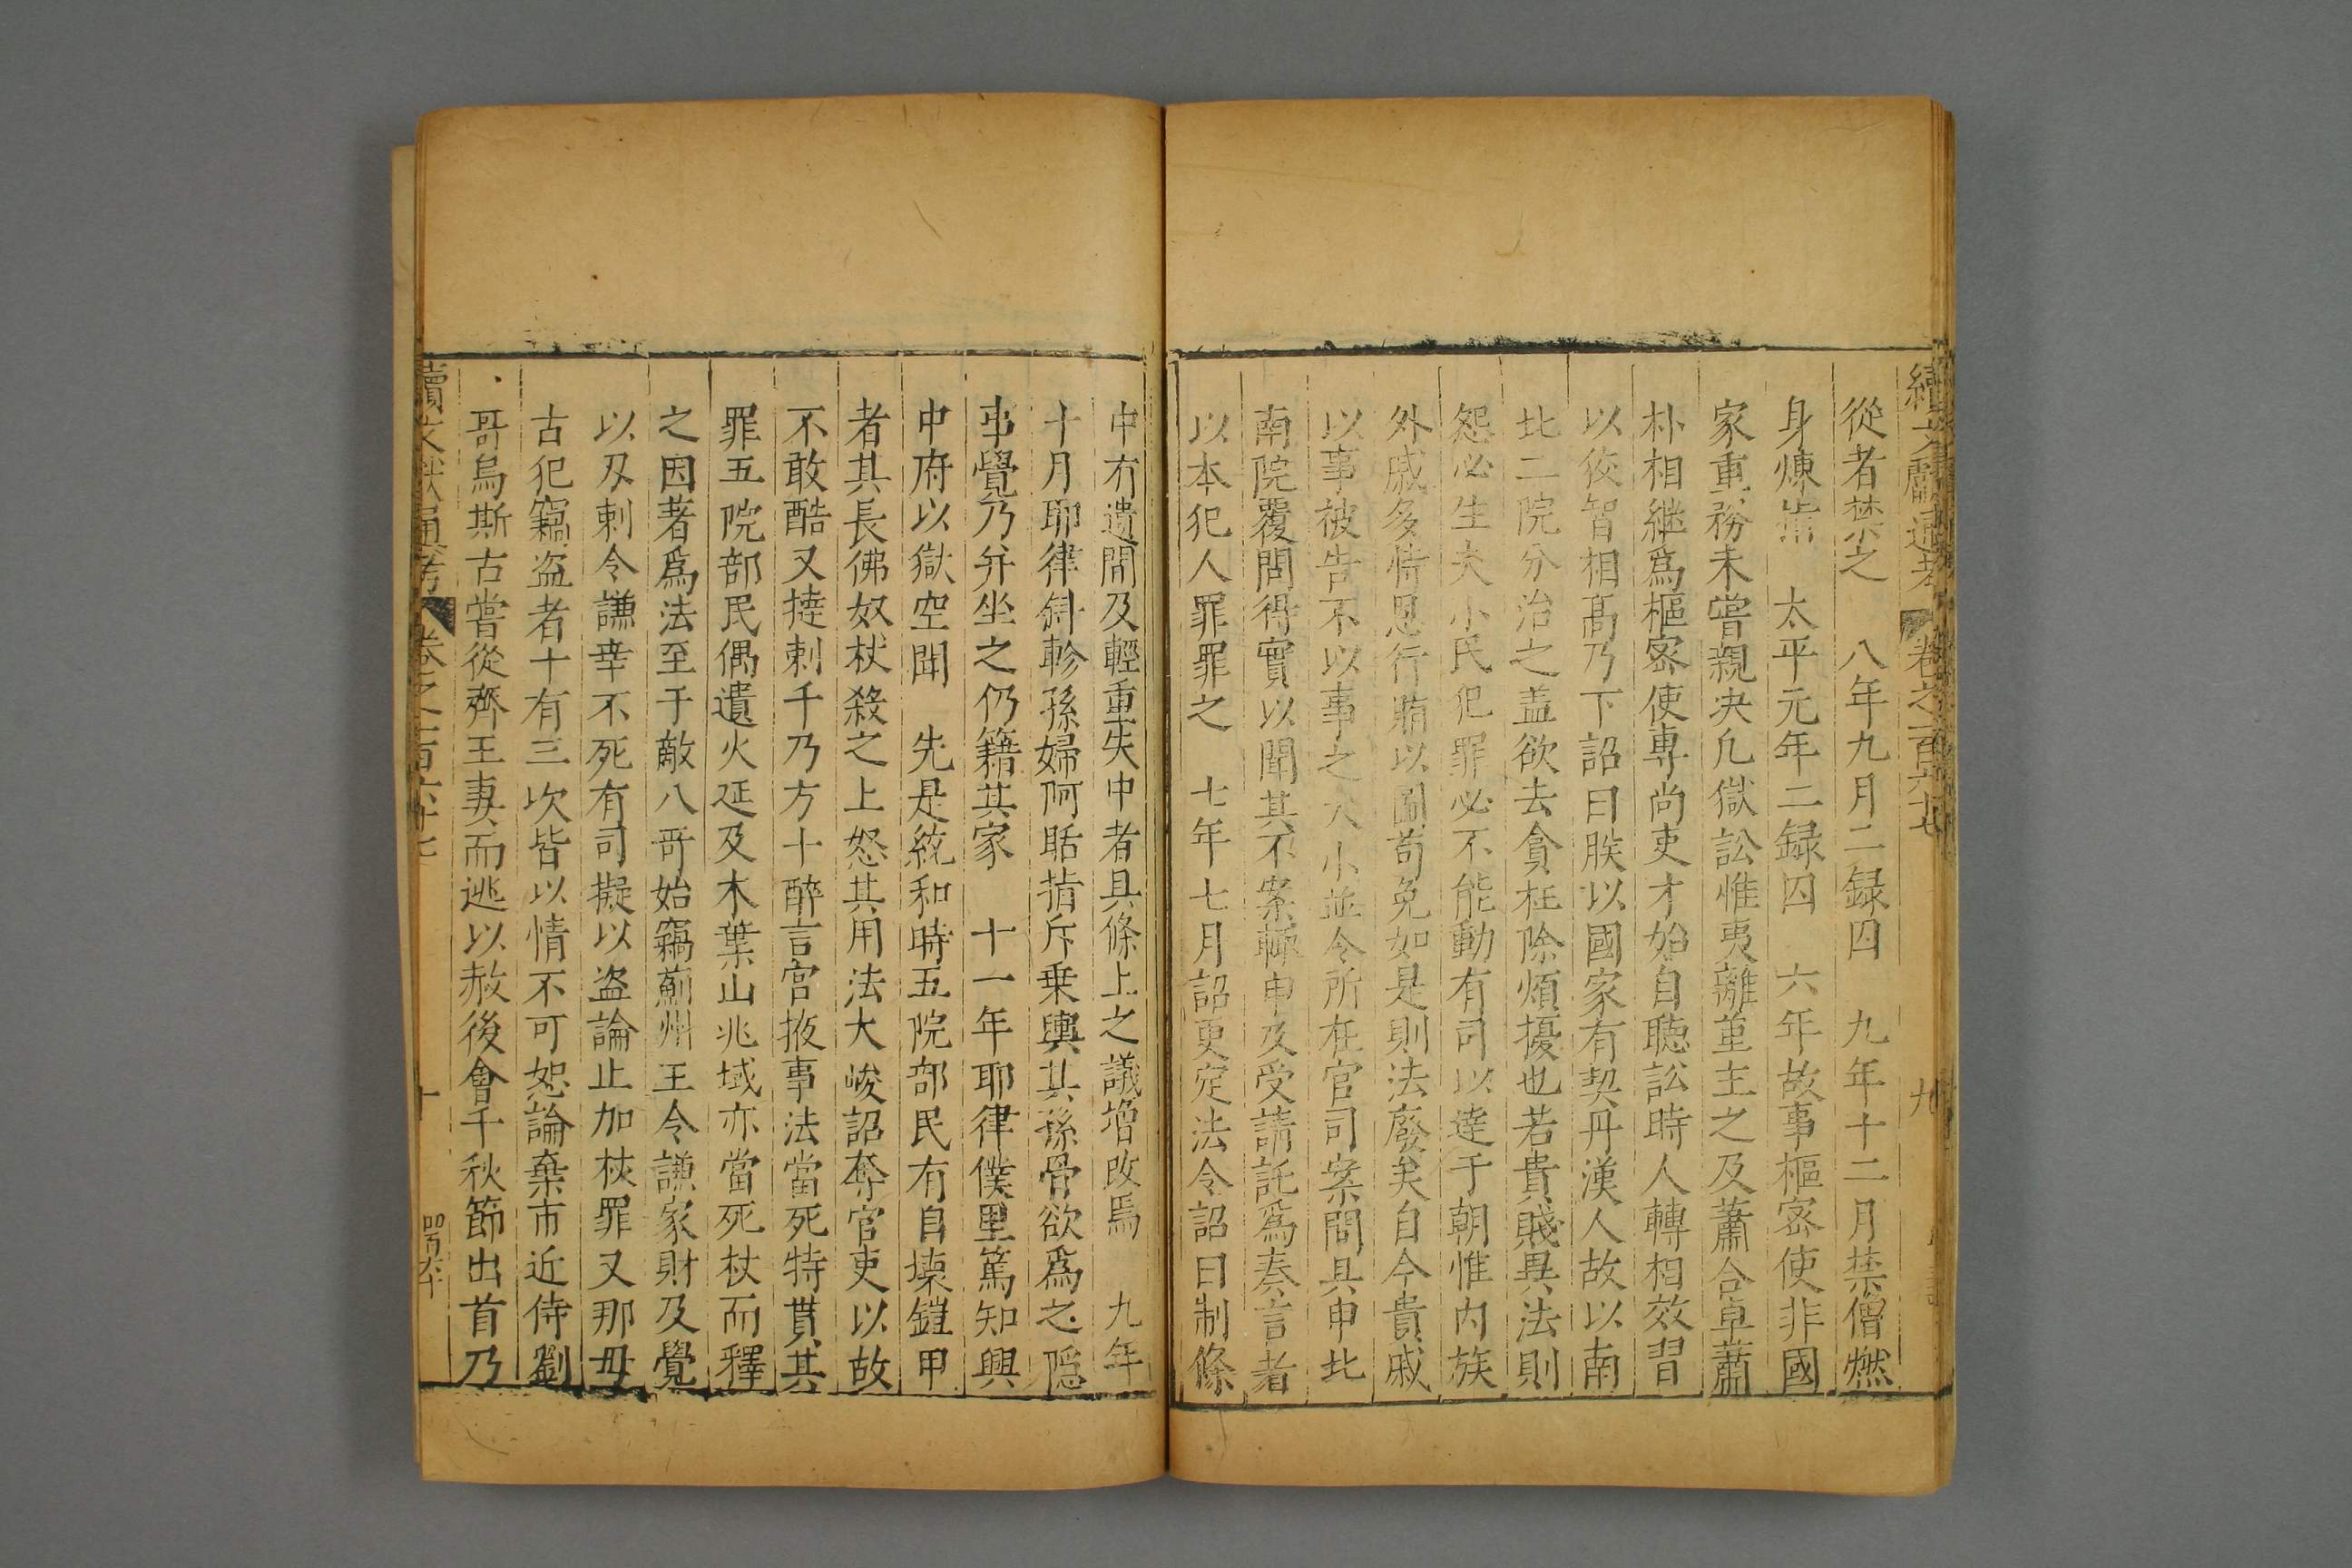 續文獻通考 卷之一百六十七 九
從者禁之 八年九月二録囚 九年十二月禁僧燃
身煉指 太平元年二録囚 六年故事樞密使非國
家重務未嘗親决凢獄訟惟夷離堇主之及蕭合卓蕭
朴相継爲樞密使專尚吏才始自聽訟時人轉相效習
以狡智相高乃下詔曰朕以國家有契丹漢人故以南
北二院分治之盖欲去貪枉除煩擾也若貴賤異法則
怨必生夫小民犯罪必不能動有司以達于朝惟内族
外戚多恃恩行賄以圖苟免如是則法廢矣自今貴戚
以事被告不以事之大小並令所在官司案問具申北
南院覆問得實以聞其不案輒申及受請託爲奏言者
以本犯人罪罪之 七年七月詔更定法令詔曰制條
中有遺闕及輕重失中者具條上之議增改焉 九年
十月耶律斜軫孫婦阿聒指斥乗輿其孫骨欲爲之隱
事覺乃并坐之仍籍其家 十一年耶律僕里篤知興
中府以獄空聞 先是統和時五院部民有自壞鎧甲
者其長彿奴杖殺之上怒其用法大峻詔奪官吏以故
不敢酷又撻剌千乃方十醉言宫掖事法當死特貰其
罪五院部民偶遺火延及木葉山兆域亦當死杖而釋
之因著爲法至于敵八哥始竊薊州王令謙家財及覺
以刄刺令謙幸不死有司擬以盗論止加杖罪又那毋
古犯竊盗者十有三次皆以情不可恕論棄市近侍劉
哥烏斯古嘗從齊王妻而逃以赦後會千秋節出首乃
續文獻通考 卷之一百六十七 十